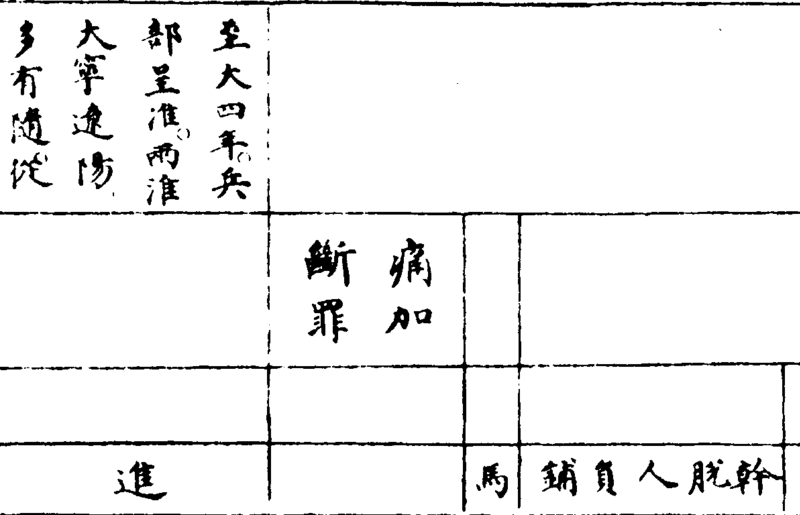 至大四年兵
部呈准兩淮
大寧遼陽
多有隨從
痛加
斷罪
幹脱人負鋪
馬
進